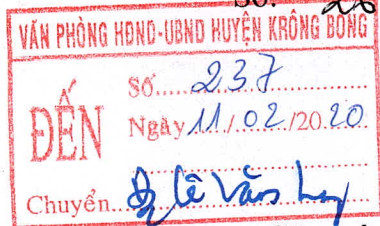 Số:
VĂN PHÒNG HĐND-UBND HUYỆN KRÔNG BÔNG
ĐẾN
Số......237
Ngày 11/02/20.20
Chuyển...Lê Văn